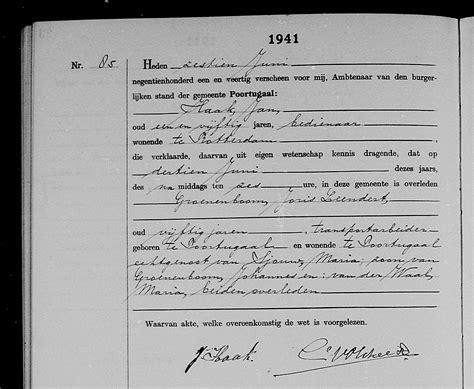 1941
Nr. 85
Heden zestien Juni
negentienhonderd een en veertig verscheen voor mij, Ambtenaar van den burger-
lijken stand der gemeente Poortugaal:
Haak, Jan,
oud een en vijftig jaren, bedienaar
wonende te Rotterdam
die verklaarde, daarvan uit eigen wetenschap kennis dragende, dat op
dertien Juni dezes jaars,
des na middags ten zes ure, in deze gemeente is overleden
Groenenboom, Joris Leendert,
oud vijftig jaren, transportarbeider
geboren te Poortugaal en wonende te Poortugaal
echtgenoot van Maria; zoon van
Groenenboom, Johannes en: van der Waal,
Maria, beiden overleden
Waarvan akte, welke overeenkomstig de wet is voorgelezen.
J Haak.